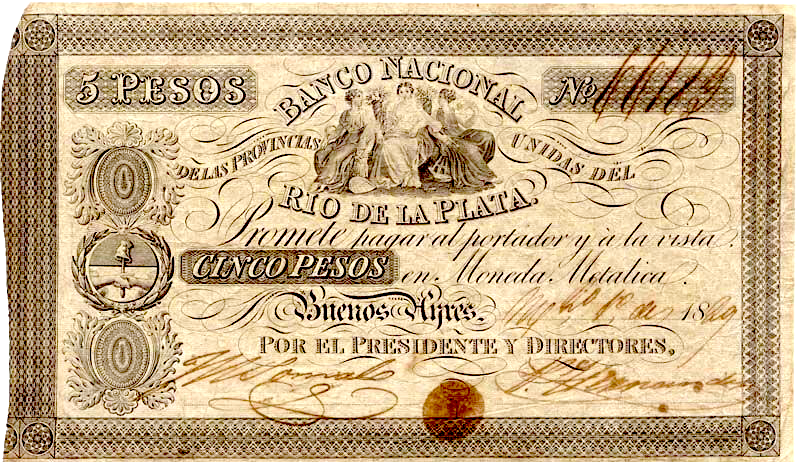 5 PESOS
BANCO NACIONAL
Nº 66183
DE LAS PROVINCIAS UNIDAS DEL
RIO DE LA PLATA.
Promete pagar al portador y à la vista.
CINCO PESOS en Moneda Metalica.
Buenos Ayres, 1º de 1829
POR EL PRESIDENTE Y DIRECTORES,